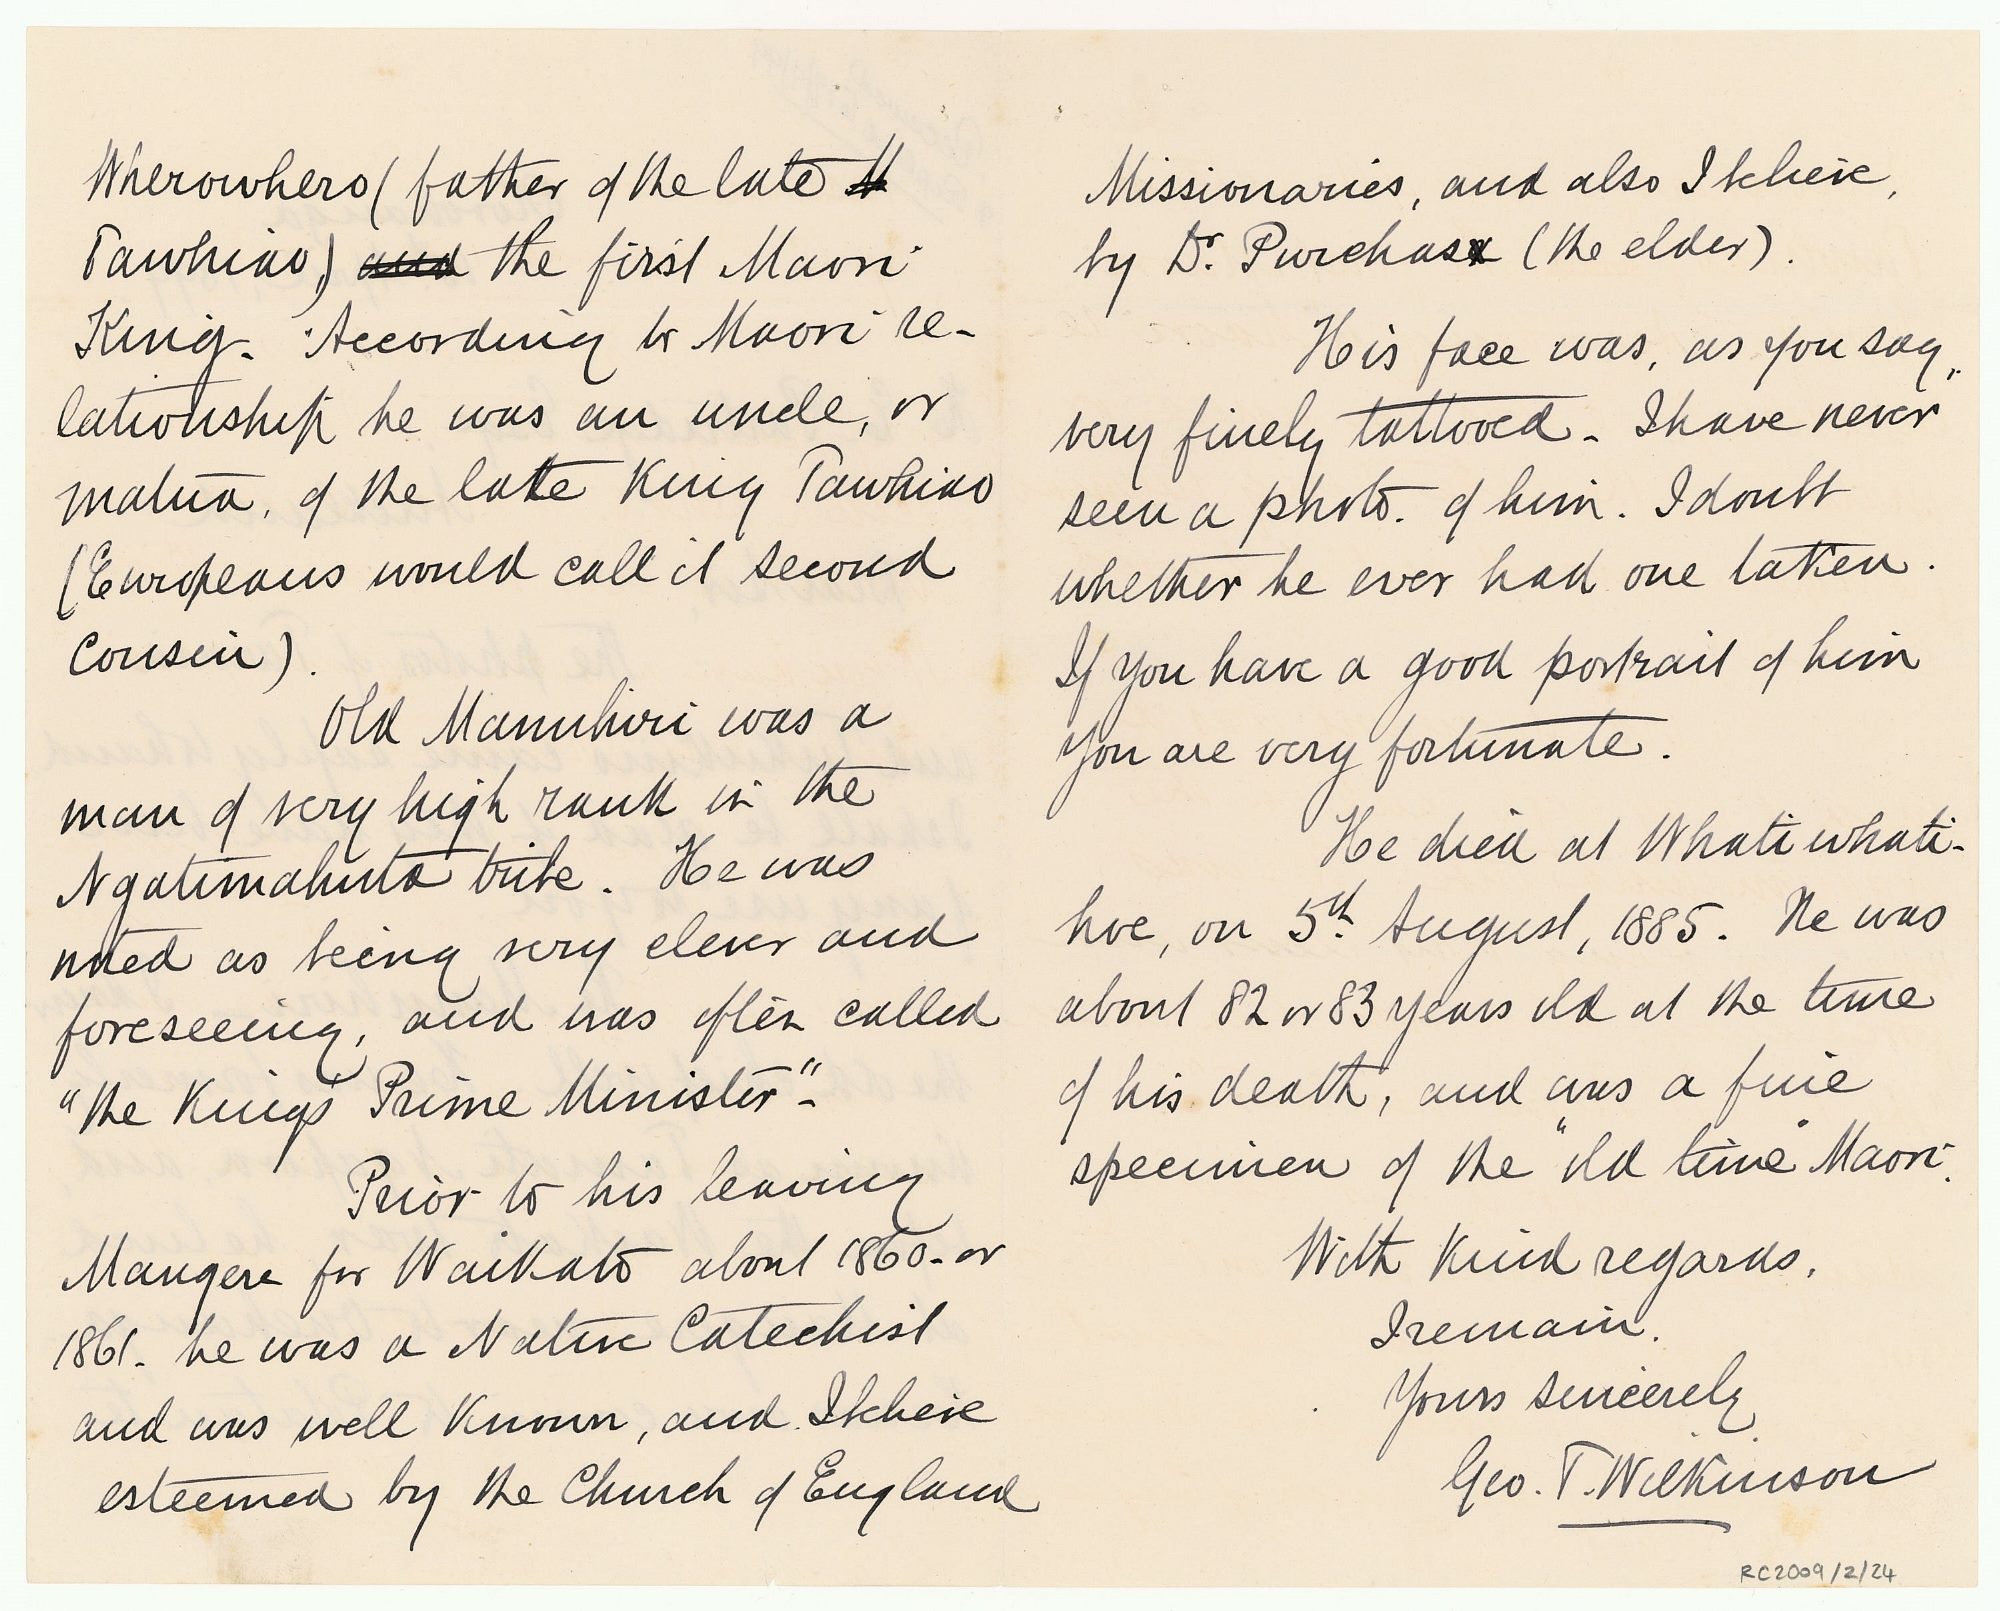 Wherowhero (father of the late
Tawhiao) and the first Maori
King. According to Maori re-
lationship he was an uncle, or
matua, of the late King Tawhiao
(Europeans would call it second
Cousin).
Old Manuhiri was a
man of very high rank in the
Ngatimahuta tribe. He was
noted as being very clever and
foreseeing, and was often called
"the King's Prime Minister"-
Prior to his leaving
Mangere for Waikato about 1860- or
1861- he was a Native Catechist
and was well known, and I believe
esteemed by the Church of England
Missionaries, and also I believe,
by Dr. Purchas (the elder).
His face was, as you say,
very finely tattooed - I have never
seen a photo. of him. I doubt
whether he ever had one taken.
If you have a good portrait of him
you are very fortunate.
He died at Whatiwhati-
hoe, on 5th August, 1885. He was
about 82 or 83 years old at the time
of his death, and was a fine
specimen of the "old time" Maori.
With kind regards,
I remain.
Yours sincerely
Geo. T. Wilkinson
RC2009/2/24